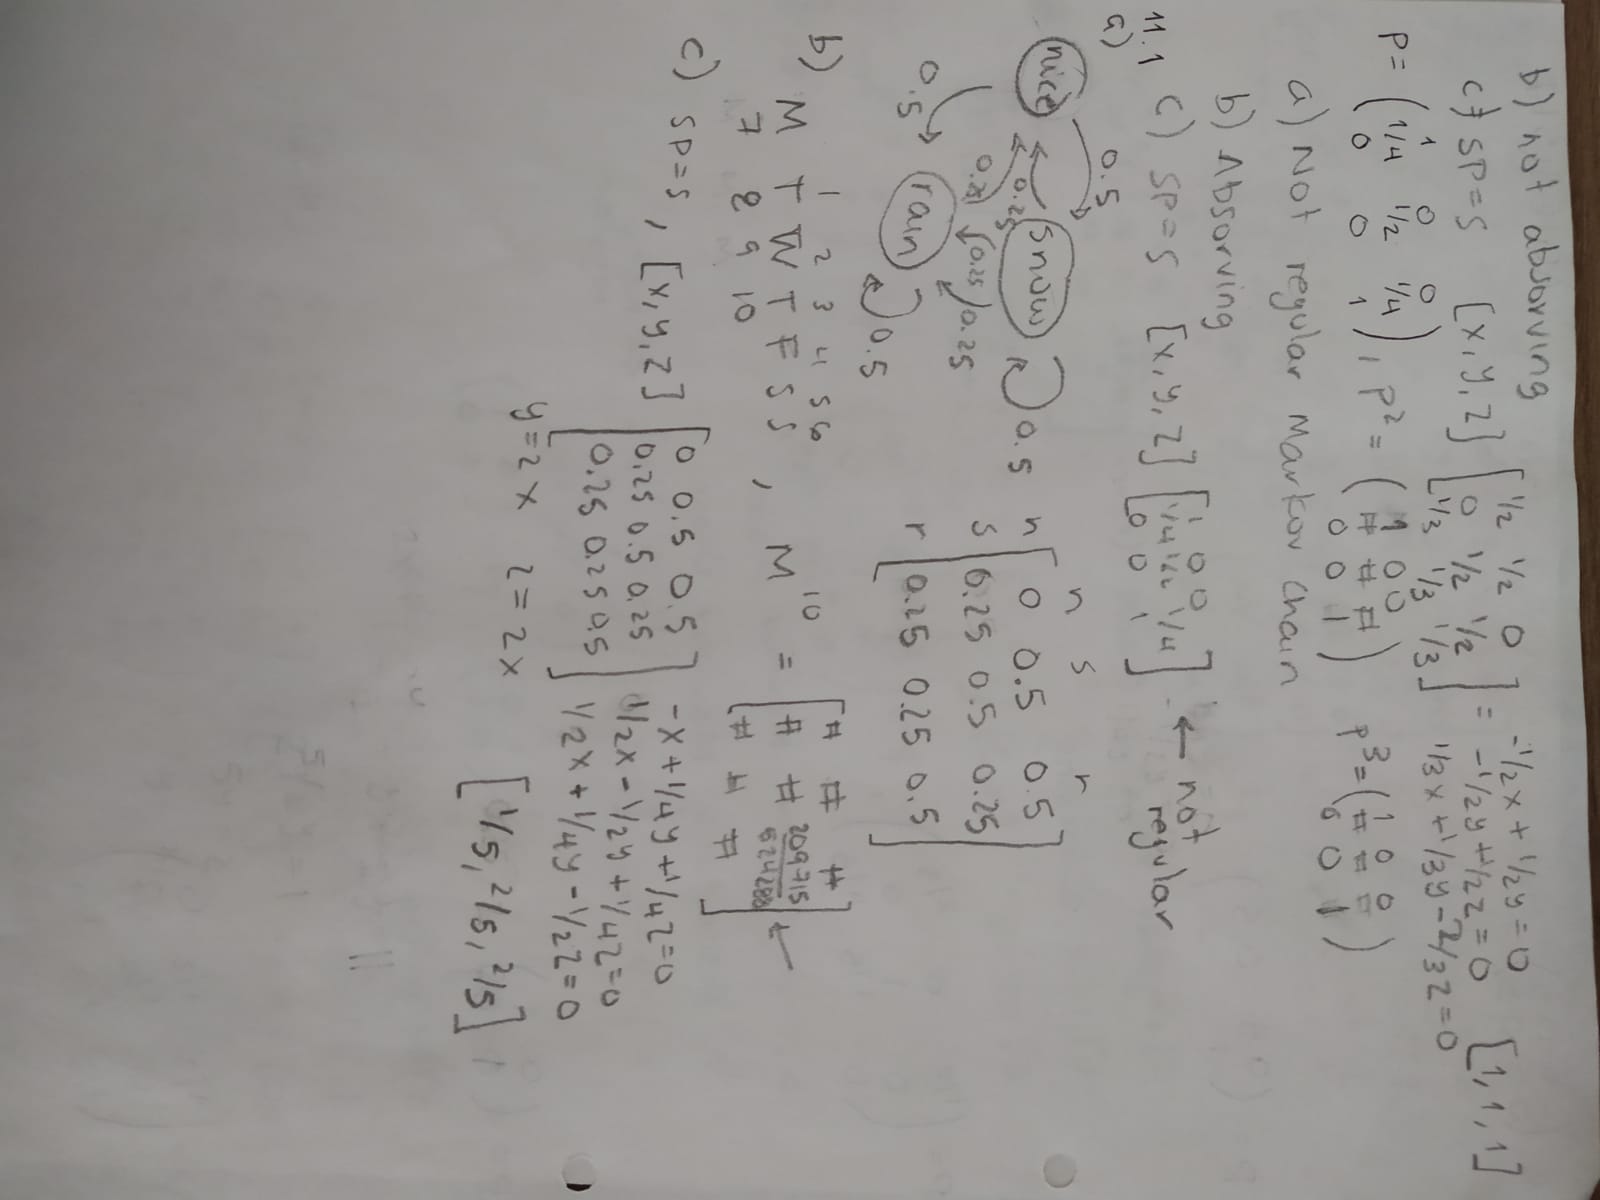 b) not absorving
c) SP=S [x,y,z] [1/2 1/2 0
0 1/2 1/2
1/3 1/3 1/3] = -1/2x+1/2y=0
-1/2y+1/2z=0
1/3x+1/3y-2/3z=0 [1,1,1]
P= (1 0 0
1/4 1/2 1/4
0 0 1), P²= (1 0 0
# # #
0 0 1) P³=(1 0 0
# # #
0 0 1)
a) Not regular Markov chain
b) Absorving
c) SP=S [x,y,z] [1 0 0
1/4 1/2 1/4
0 0 1] ← not
regular
11.1
a)
0.5
nice snow 0.5
0.25
0.25 0.25 0.25
0.5 rain 0.5
n s r
n [0 0.5 0.5
s 0.25 0.5 0.25
r 0.25 0.25 0.5]
b) 1 2 3 4 5 6
M T W T F S S , M¹⁰ = [# # #
# # 209715/524288
# # #] ←
7 8 9 10
c) SP=S, [x,y,z] [0 0.5 0.5
0.25 0.5 0.25
0.25 0.25 0.5] -x+1/4y+1/4z=0
1/2x-1/2y+1/4z=0
1/2x+1/4y-1/2z=0
y=2x z=2x [1/5, 2/5, 2/5]